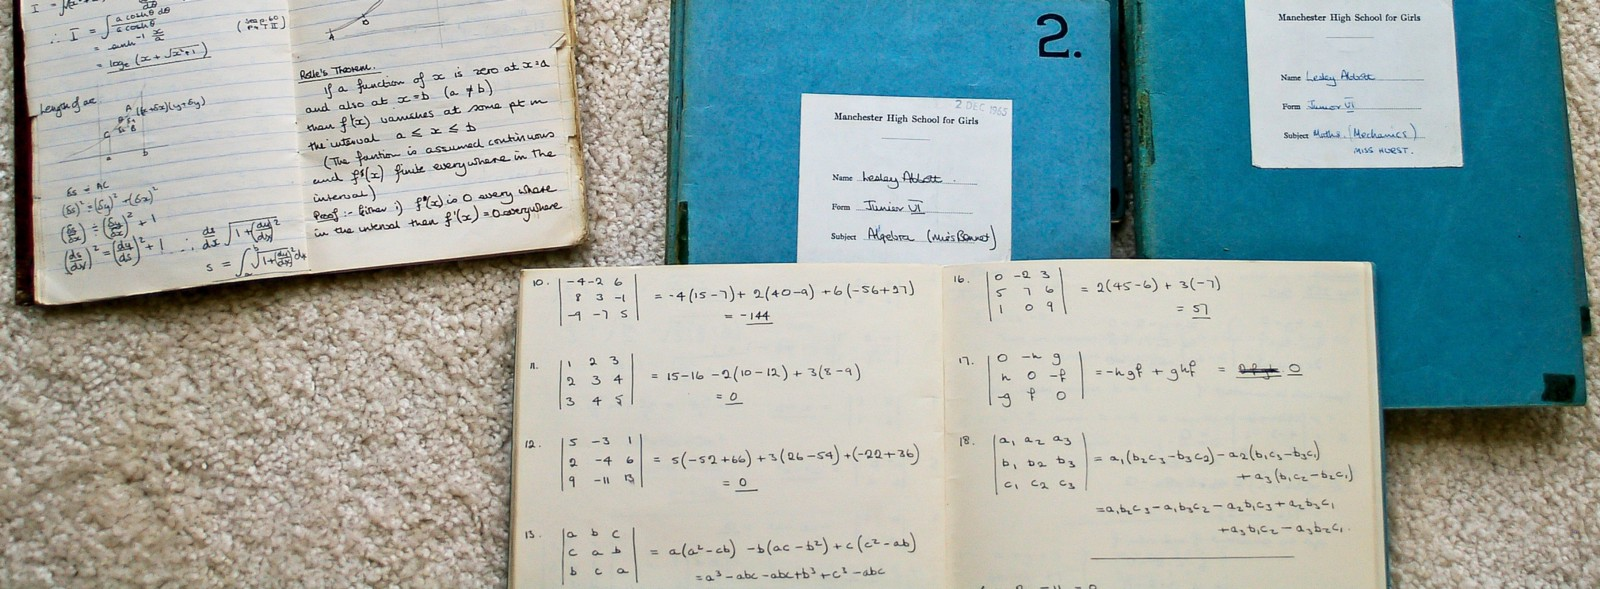 ∴ I = ∫ a cosh θ dθ / a cosh θ
= sinh⁻¹ x/a
= logₑ (x + √x²+1)
(see p. 60
Pt II)
Length of arc
A
(x+δx)(y+δy)
C
B
a
b
δs ≈ AC
(δs)² = (δy)² + (δx)²
(δs/δx)² = (δy/δx)² + 1
(ds/dx)² = (dy/dx)² + 1 ∴ ds/dx = √1+(dy/dx)²
A
b
Rolle's Theorem.
If a function of x is zero at x=a
and also at x=b (a ≠ b)
then f'(x) vanishes at some pt in
the interval a ≤ x ≤ b
(The function is assumed continuous
and f'(x) finite everywhere in the
interval)
Proof :- Either :) f(x) is 0 every where
in the interval then f'(x) = 0 everywhere
2.
2 DEC 1965
Manchester High School for Girls
Name Lesley Abbott
Form Junior VI
Subject Algebra (Miss Bonnet)
Manchester High School for Girls
Name Lesley Abbott
Form Junior VI
Subject Maths. (Mechanics)
MISS HURST.
10. | -4 -2 6 |
| 8 3 -1 | = -4(15-7) + 2(40-9) + 6(-56+27)
| -9 -7 5 | = -144
11. | 1 2 3 |
| 2 3 4 | = 15-16 -2(10-12) + 3(8-9)
| 3 4 5 | = 0
12. | 5 -3 1 |
| 2 -4 6 | = 5(-52+66) + 3(26-54) + (-22+36)
| 9 -11 13 | = 0
13. | a b c |
| c a b | = a(a²-cb) - b(ac-b²) + c(c²-ab)
| b c a | = a³-abc-abc+b³+c³-abc
16. | 0 -2 3 |
| 5 7 6 | = 2(45-6) + 3(-7)
| 1 0 9 | = 57
17. | 0 -h g |
| h 0 -f | = -hgf + ghf = 0
| -g f 0 |
18. | a₁ a₂ a₃ |
| b₁ b₂ b₃ | = a₁(b₂c₃-b₃c₂) - a₂(b₁c₃-b₃c₁)
| c₁ c₂ c₃ | + a₃(b₁c₂-b₂c₁)
= a₁b₂c₃-a₁b₃c₂-a₂b₁c₃+a₂b₃c₁
+a₃b₁c₂-a₃b₂c₁.